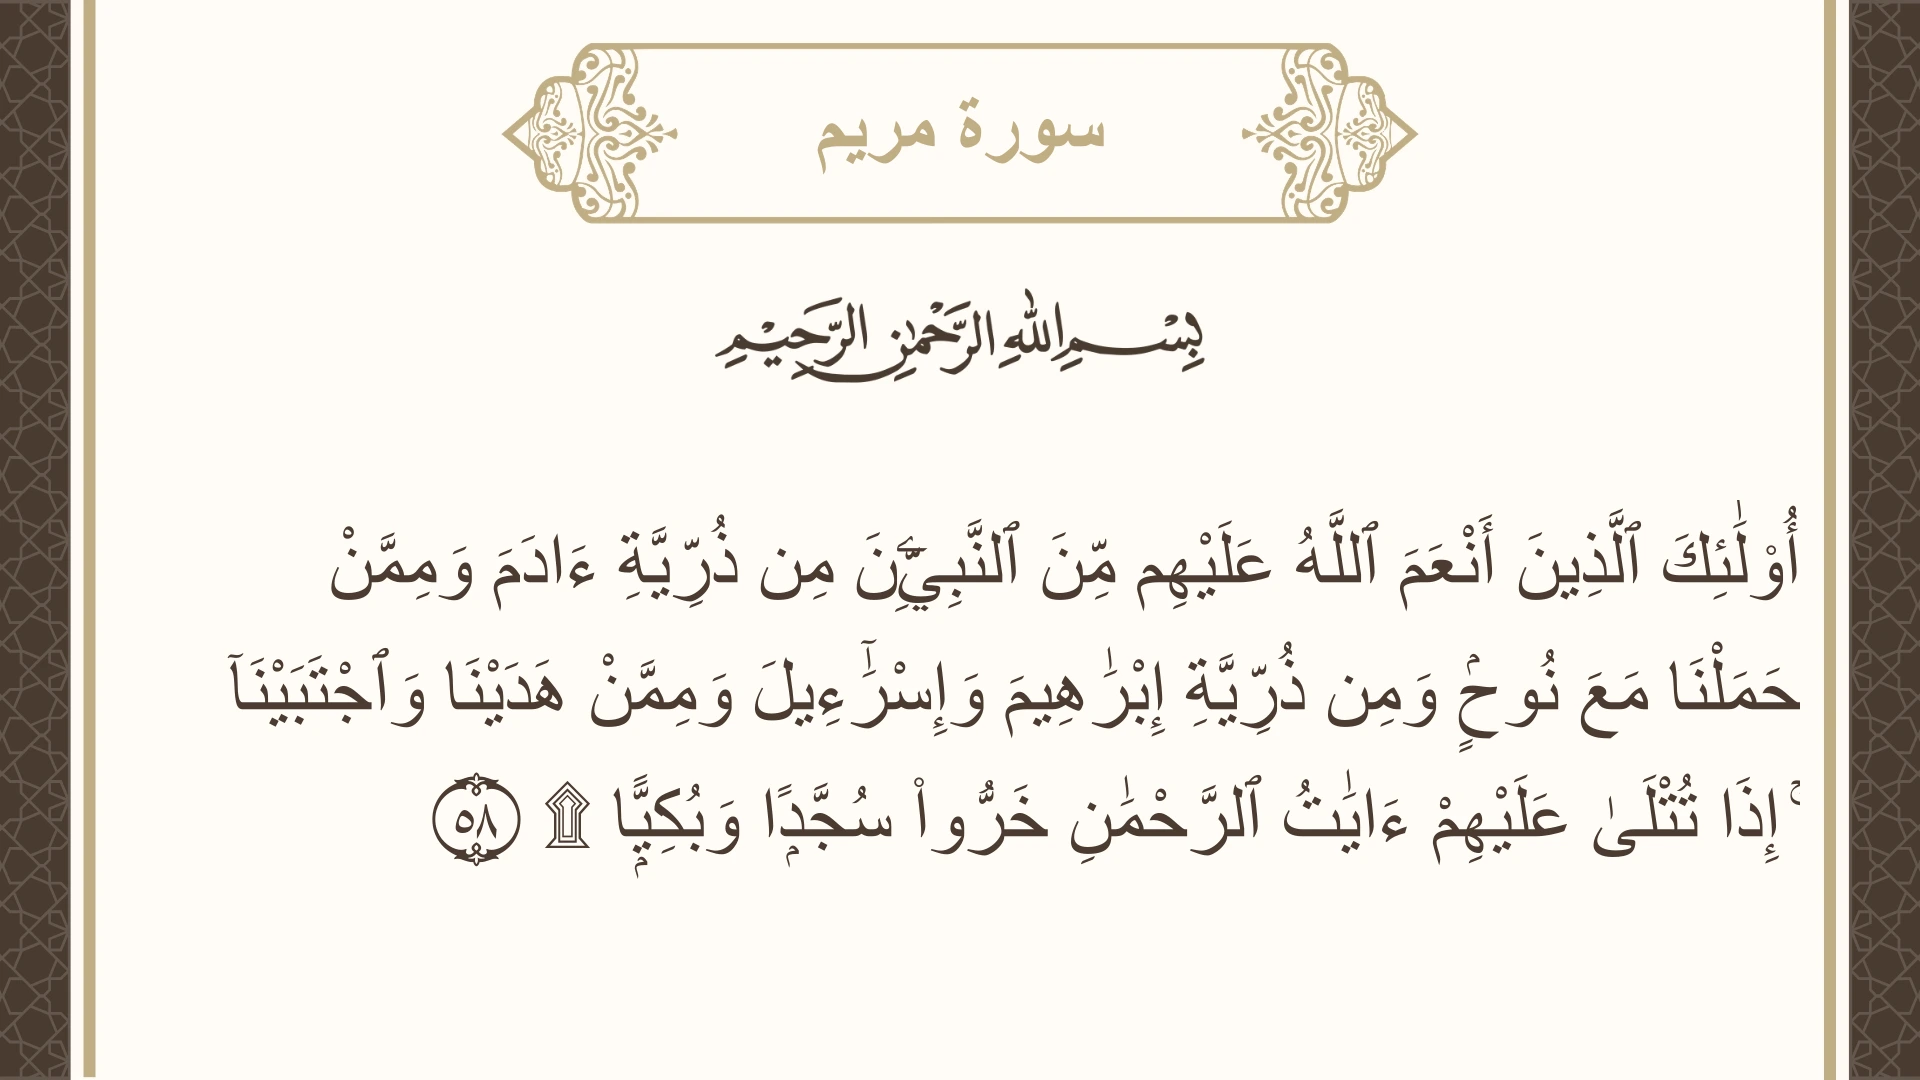 سورة مريم
بِسْمِ اللهِ الرَّحْمٰنِ الرَّحِيْمِ
أُو۟لَٰٓئِكَ ٱلَّذِينَ أَنْعَمَ ٱللَّهُ عَلَيْهِم مِّنَ ٱلنَّبِيِّۦنَ مِن ذُرِّيَّةِ ءَادَمَ وَمِمَّنْ
حَمَلْنَا مَعَ نُوحٍۢ وَمِن ذُرِّيَّةِ إِبْرَٰهِيمَ وَإِسْرَٰٓءِيلَ وَمِمَّنْ هَدَيْنَا وَٱجْتَبَيْنَآ
ۚ إِذَا تُتْلَىٰ عَلَيْهِمْ ءَايَٰتُ ٱلرَّحْمَٰنِ خَرُّوا۟ سُجَّدًۭا وَبُكِيًّۭا ۩ ٥٨